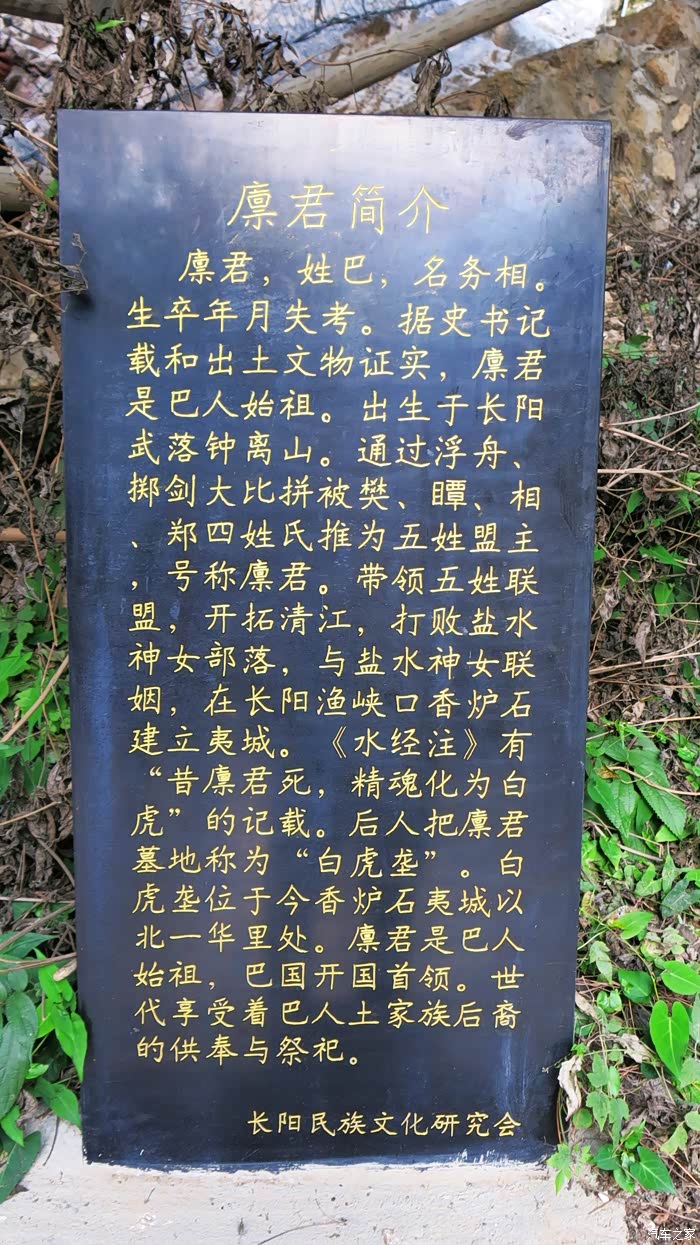 廪君简介
廪君，姓巴，名务相。
生卒年月失考。据史书记
载和出土文物证实，廪君
是巴人始祖。出生于长阳
武落钟离山。通过浮舟、
掷剑大比拼被樊、瞫、相
、郑四姓氏推为五姓盟主
，号称廪君。带领五姓联
盟，开拓清江，打败盐水
神女部落，与盐水神女联
姻，在长阳渔峡口香炉石
建立夷城。《水经注》有
“昔廪君死，精魂化为白
虎”的记载。后人把廪君
墓地称为“白虎垄”。白
虎垄位于今香炉石夷城以
北一华里处。廪君是巴人
始祖，巴国开国首领。世
代享受着巴人土家族后裔
的供奉与祭祀。
长阳民族文化研究会
汽车之家